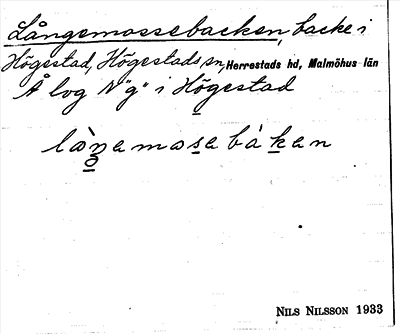 Långemossebacken, backe i
Högestad, Högestads sn, Herrestads hd, Malmöhus län
Å log N "g" i Högestad
lång̥emosabákan
NILS NILSSON 1933